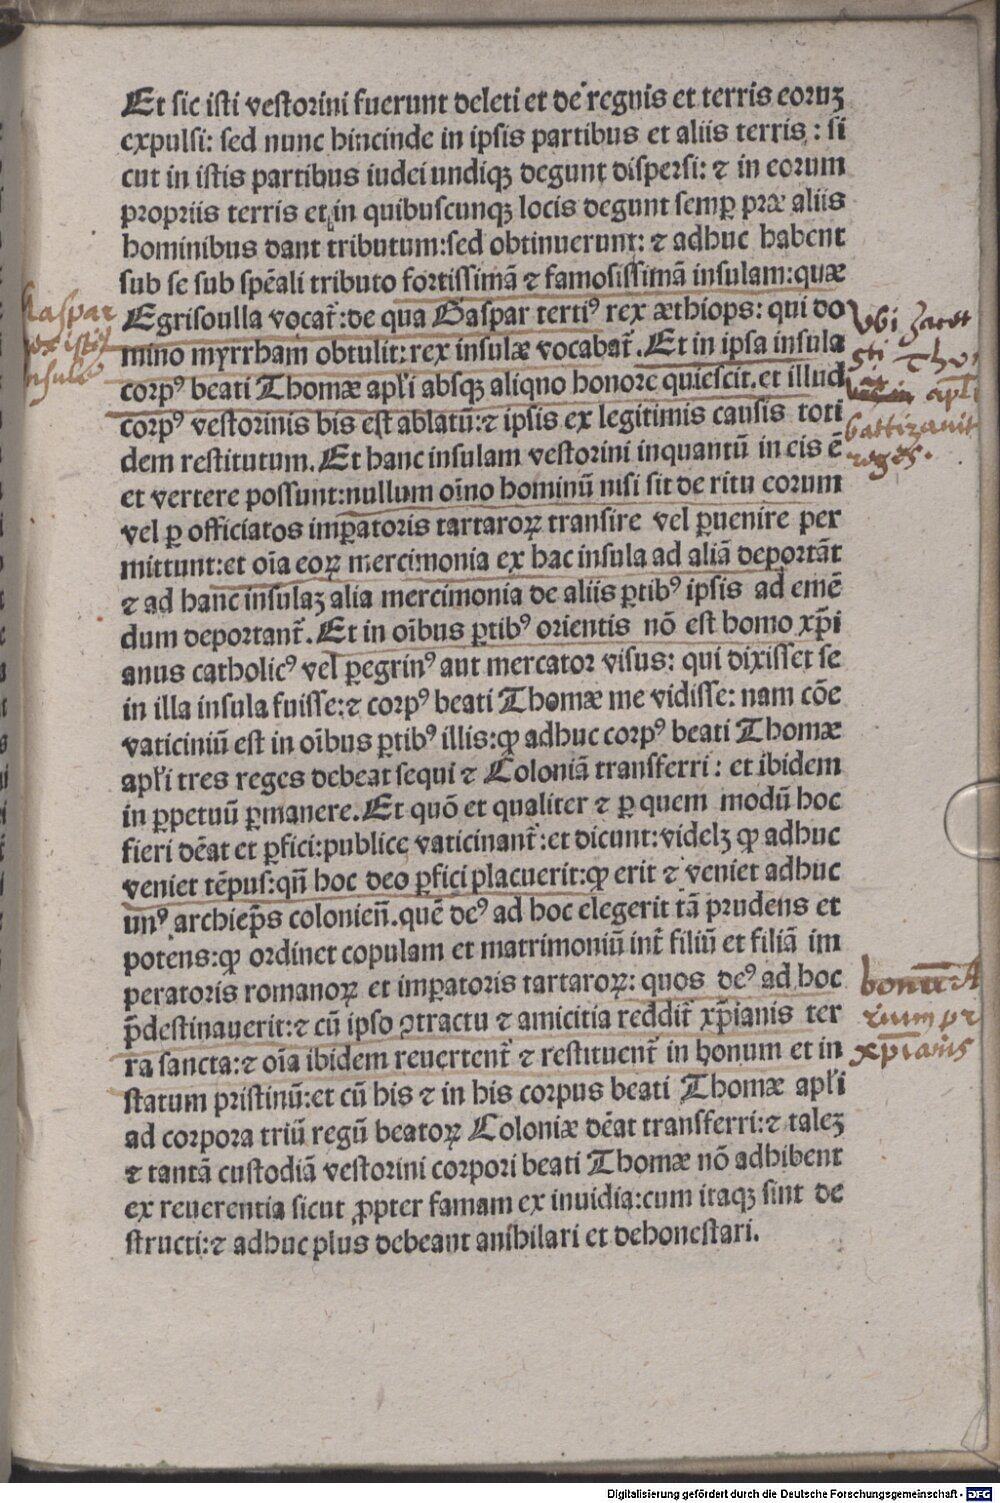 Et sic isti vestorini fuerunt deleti et de regnis et terris eoruꝫ
expulsi: sed nunc hincinde in ipsis partibus et aliis terris : si
cut in istis partibus iudei undiqꝫ degunt dispersi: ⁊ in eorum
propriis terris et in quibuscunqꝫ locis degunt semꝑ præ aliis
hominibus dant tributum:sed obtinuerunt: ⁊ adhuc habent
sub se sub spēali tributo fortissimā ⁊ famosissimā insulam:quæ
Egrisoulla vocat̄:de qua Gaspar tertiꝰ rex æthiops: qui do
mino myrrham obtulit:rex insulæ vocabat̄.Et in ipsa insula
corpꝰ beati Thomæ apłi absqꝫ aliqno honore quiescit.et illud
corpꝰ vestorinis bis est ablatū:⁊ ipsis ex legitimis causis toti
dem restitutum.Et hanc insulam vestorini inquantū in eis ē
et vertere possunt:nullum oīno hominū nisi sit de ritu eorum
vel ꝑ officiatos imꝑatoris tartaroꝝ transire vel ꝑuenire per
mittunt:et oīa eoꝝ mercimonia ex hac insula ad aliā deportāt
⁊ ad hanc insulaꝫ alia mercimonia de aliis ꝑtibꝰ ipsis ad emē
dum deportant̄.Et in oībus ꝑtibꝰ orientis nō est homo xp̄i
anus catholicꝰ vel ꝑegrinꝰ aut mercator visus: qui dixisset se
in illa insula fuisse:⁊ corpꝰ beati Thomæ me vidisse: nam cōe
vaticiniū est in oībus ꝑtibꝰ illis:ꝙ adhuc corpꝰ beati Thomæ
apłi tres reges debeat sequi ⁊ Coloniā transferri : et ibidem
in ꝑpetuū ꝑmanere.Et quō et qualiter ⁊ ꝑ quem modū hoc
fieri dēat et ꝑfici:publice vaticinant̄:et dicunt:videlꝫ ꝙ adhuc
veniet tēpus:qn̄ hoc deo ꝑfici placuerit:ꝙ erit ⁊ veniet adhuc
unꝰ archiep̄s colonien̄.quē deꝰ ad hoc elegerit tā prudens et
potens:ꝙ ordinet copulam et matrimoniū int̄ filiū et filiā im
peratoris romanoꝝ et imꝑatoris tartaroꝝ: quos deꝰ ad hoc
p̄destinauerit:⁊ cū ipso ꝯtractu ⁊ amicitia reddit̄ xp̄ianis ter
ra sancta:⁊ oīa ibidem reuertent̄ ⁊ restituent̄ in bonum et in
statum pristinū:et cū his ⁊ in his corpus beati Thomæ apłi
ad corpora triū regū beatoꝝ Coloniæ dēat transferri:⁊ taleꝫ
⁊ tantā custodiā vestorini corpori beati Thomæ nō adhibent
ex reuerentia sicut ꝓpter famam ex inuidia:cum itaqꝫ sint de
structi:⁊ adhuc plus debeant anihilari et dehonestari.
Kaspar
rex istiꝰ
insule
Vbi Jacet
Tho
apłi
battizauit
reges.
bonū
xp̄ianis
Digitalisierung gefördert durch die Deutsche Forschungsgemeinschaft - DFG